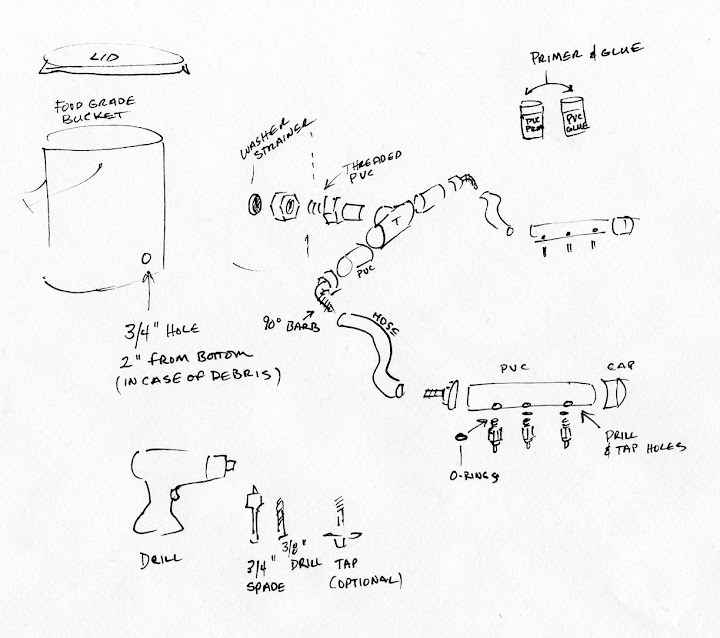 LID
FOOD GRADE
BUCKET
PRIMER & GLUE
PVC
PRM
PVC
GLUE
WASHER
STRAINER
THREADED
PVC
T
T
PVC
90° BARB
HOSE
3/4" HOLE
2" FROM BOTTOM
(IN CASE OF DEBRIS)
PVC
CAP
DRILL
& TAP HOLES
O-RINGS
DRILL
3/4"
SPADE
3/8"
DRILL
TAP
(OPTIONAL)